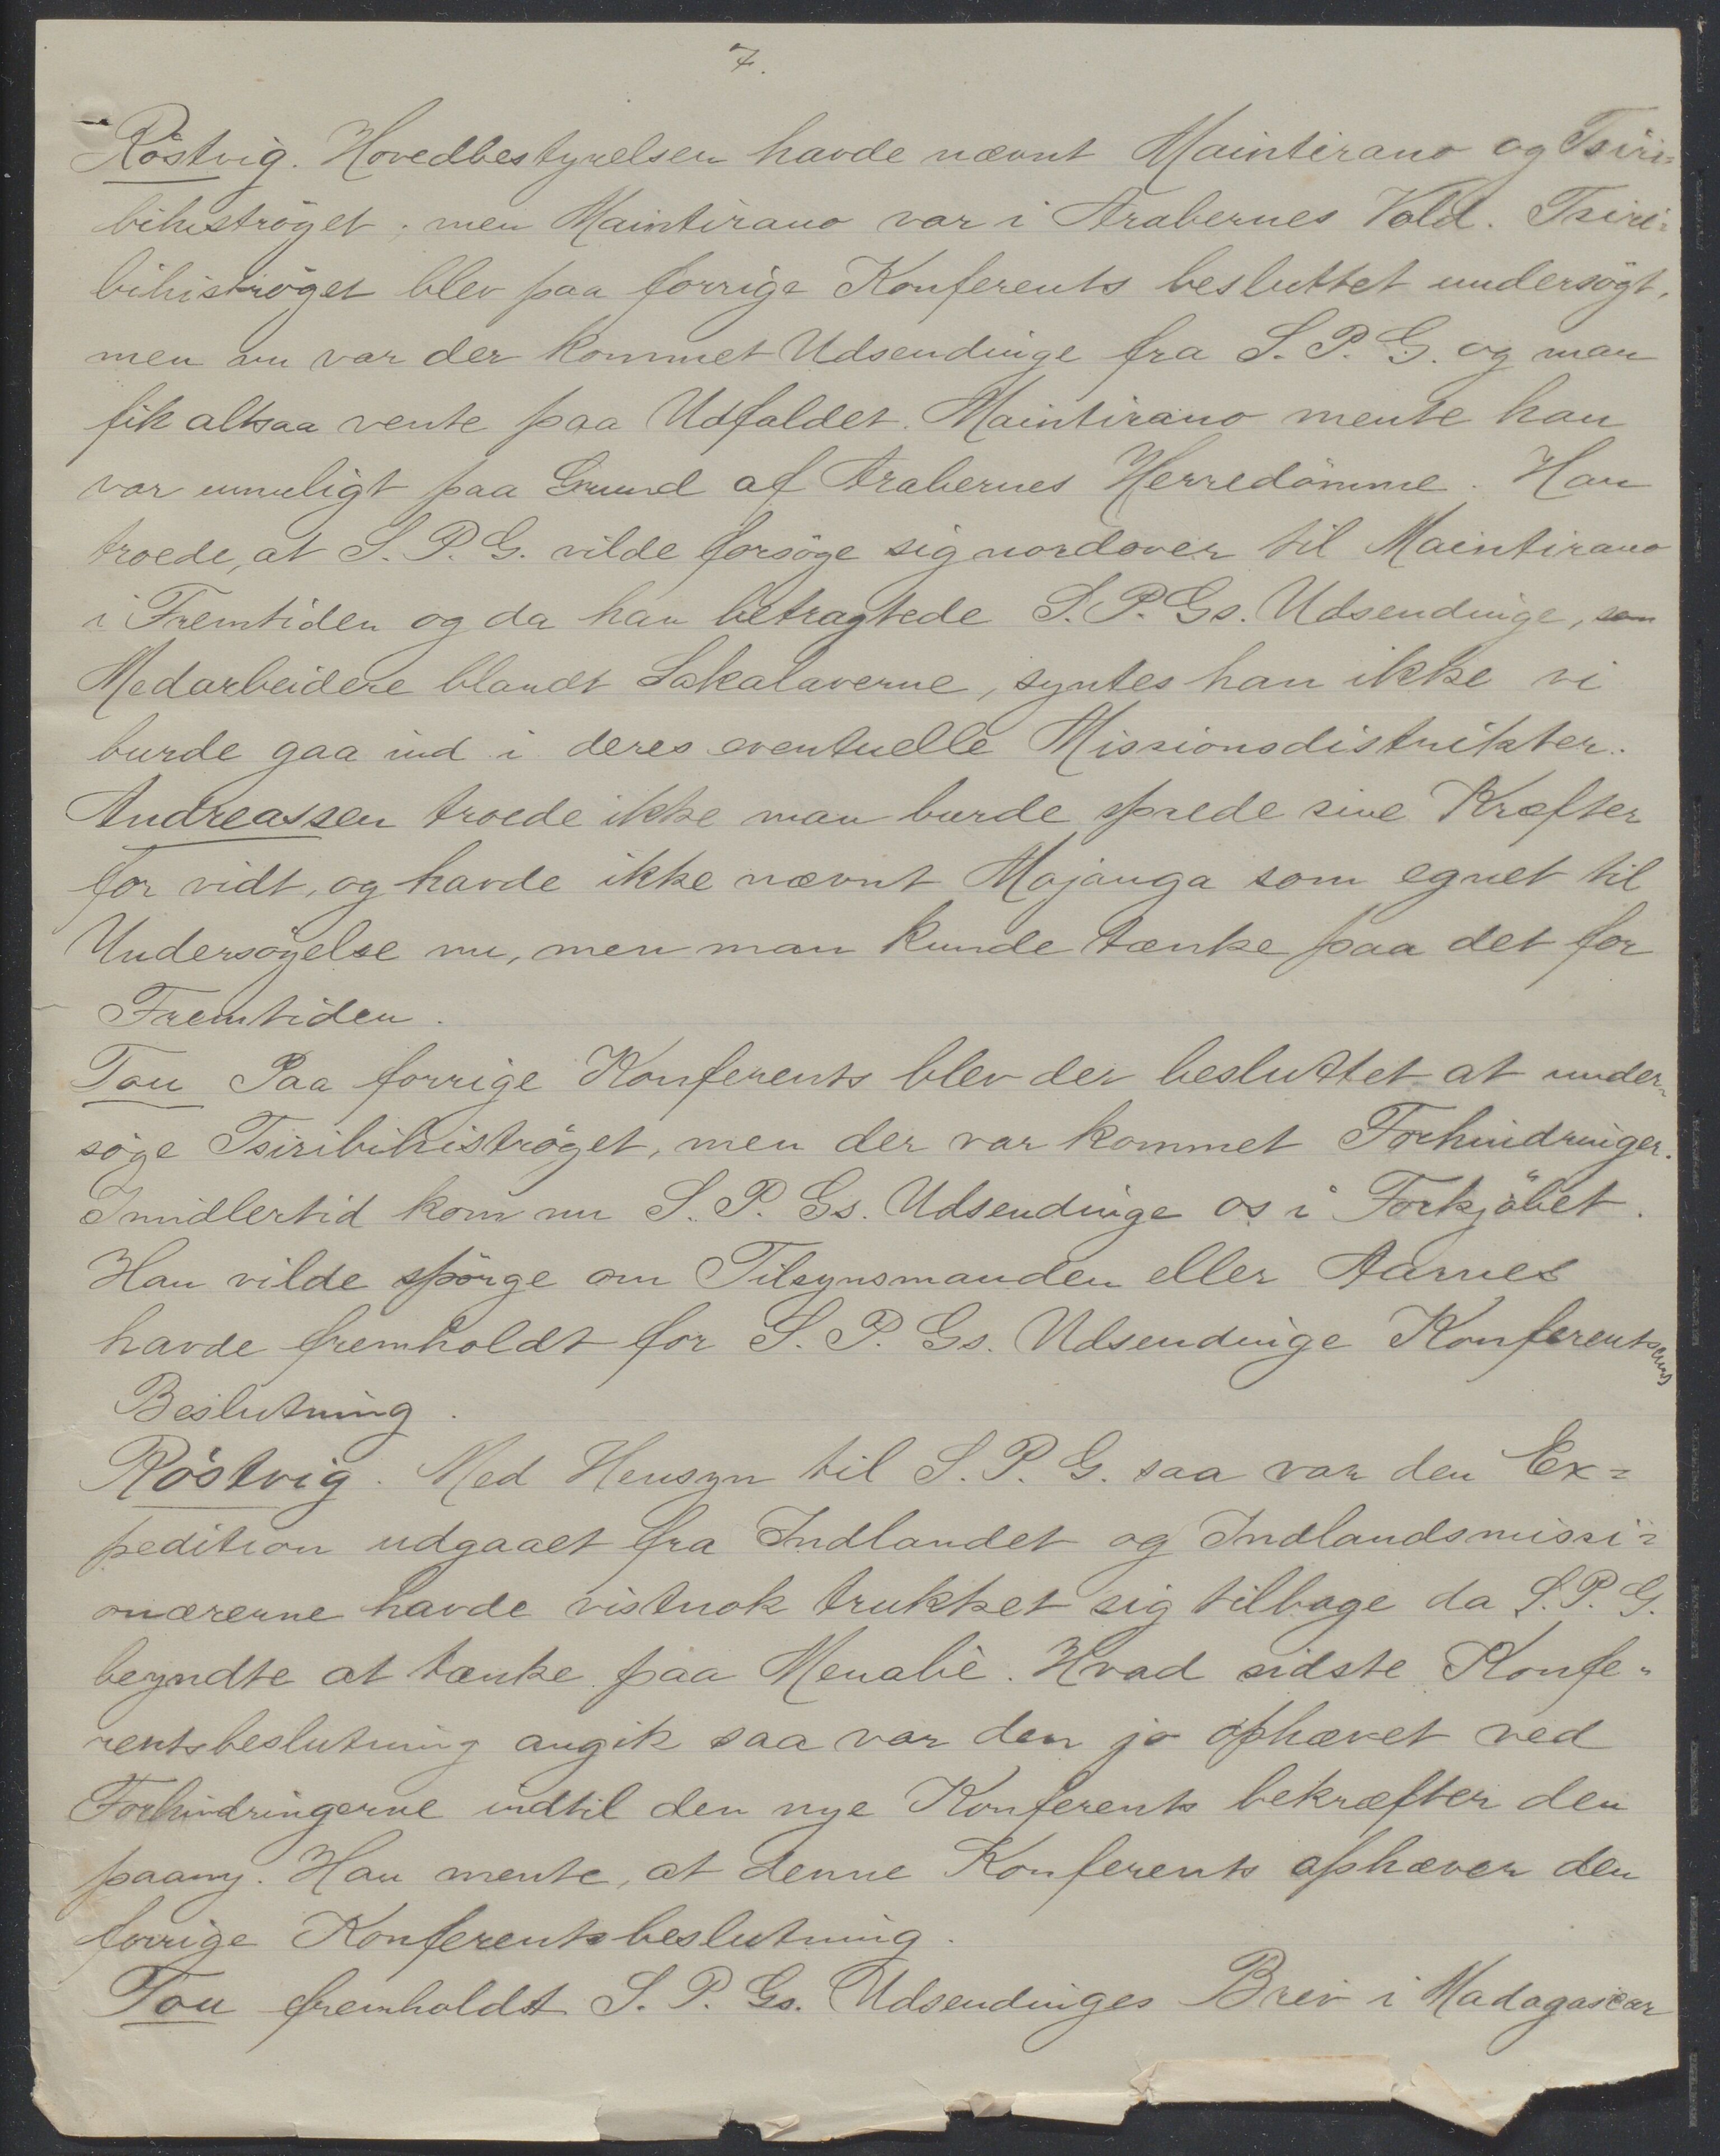 7.
Röstvig. Hovedbestyrelsen havde nævnt Maintirano og Tsiri=
bihiströget; men Maintirano var i Arabernes Vold. Tsiri=
bihiströget blev paa forrige Konferents besluttet undersögt,
men nu var der kommet Udsendinge fra S. P. G. og man
fik altsaa vente paa Udfaldet. Maintirano mente han
var umuligt paa Grund af Arabernes Herredömme. Han
troede, at S. P. G. vilde forsöge sig nordover til Maintirano
i Fremtiden og da han betragtede S. P. Gs. Udsendinge, som
Medarbeidere blandt Sakalaverne, syntes han ikke vi
burde gaa ind i deres eventuelle Missionsdistrikter.
Andreassen troede ikke man burde sprede sine Kræfter
for vidt, og havde ikke nævnt Majanga som egnet til
Undersögelse nu, men man kunde tænke paa det for
Fremtiden.
Tou Paa forrige Konferents blev der besluttet at under=
söge Tsiribihiströget, men der var kommet Forhindringer.
Imidlertid kom nu S. P. Gs. Udsendinge os i Forkjöbet.
Han vilde spörge om Tilsynsmanden eller Aarnes
havde fremholdt for S. P. Gs. Udsendinge Konferentsens
Beslutning.
Röstvig. Med Hensyn til S. P. G. saa var den Ex=
pedition udgaaet fra Indlandet og Indlandsmissi=
onærerne havde vistnok trukket sig tilbage da S. P. G.
beyndte at tænke paa Menabè. Hvad sidste Konfe=
rentsbeslutning angik saa var den jo ophævet ved
Forhindringerne indtil den nye Konferents bekræfter den
paany. Han mente, at denne Konferents ophæver den
forrige Konferentsbeslutning.
Tou fremholdt S. P. Gs. Udsendinges Brev i Madagascar